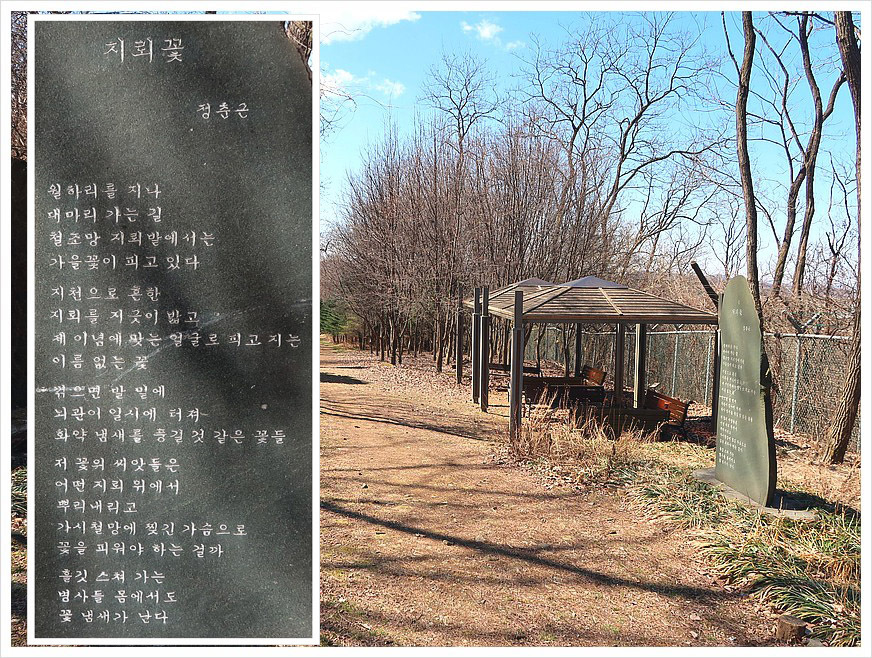 지뢰꽃
정춘근
월하리를 지나
대마리 가는 길
철조망 지뢰밭에서는
가을꽃이 피고 있다
지천으로 흔한
지뢰를 지긋이 밟고
제 이념에 맞는 얼굴로 피고 지는
이름 없는 꽃
꺾으면 발 밑에
뇌관이 일시에 터져
화약 냄새를 풍길 것 같은 꽃들
저 꽃의 씨앗들은
어떤 지뢰 위에서
뿌리내리고
가시철망에 찢긴 가슴으로
꽃을 피워야 하는 걸까
흘깃 스쳐 가는
병사들 몸에서도
꽃 냄새가 난다